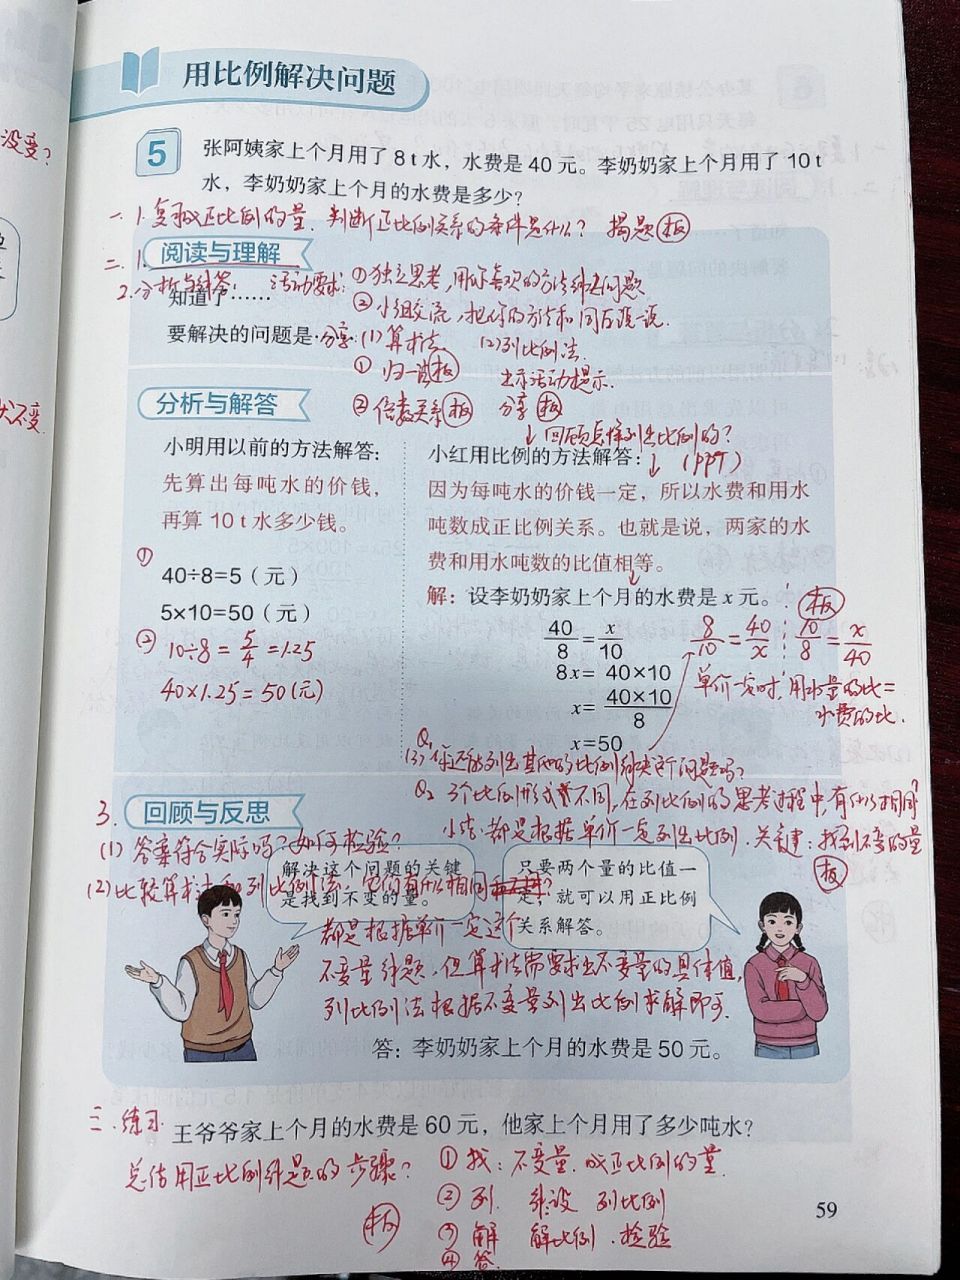 没变?
式不变
用比例解决问题
5 张阿姨家上个月用了 8 t 水，水费是 40 元。李奶奶家上个月用了 10 t
水，李奶奶家上个月的水费是多少?
一. 1. 复习成正比例的量. 判断正比例关系的条件是什么? 揭题 板
二. 1. 阅读与理解
2. 分析与解答: 活动要求: ①独立思考, 用你喜欢的方法解决问题
知道了……
②小组交流, 把你的方法和同伴说一说.
要解决的问题是 分享: (1)算术法 (2)列比例法.
①归一法 板 出示活动提示.
分析与解答 ②倍数关系 板 分享 板
↓回顾怎样列出比例的?
小明用以前的方法解答: 小红用比例的方法解答: ↓ (PPT)
先算出每吨水的价钱, 因为每吨水的价钱一定，所以水费和用水
再算 10 t 水多少钱。 吨数成正比例关系。也就是说，两家的水
① 费和用水吨数的比值相等。
40÷8=5（元） 解: 设李奶奶家上个月的水费是 x 元。 板
5×10=50（元） 40/8 = x/10 8/10 = 40/x 10/8 = x/40
② 10÷8 = 5/4 = 1.25 8x = 40×10 单价一定时, 用水量的比=
40×1.25 = 50(元) x = 40×10/8 水费的比.
x=50
Q1
(3) 你还能列出其他的比例解决这个问题吗?
Q2 3个比例形式不同, 在列比例的思考过程中, 有什么相同?
3. 回顾与反思 小结: 都是根据单价一定列出比例. 关键: 找到不变的量
(1) 答案符合实际吗? 如何检验? 板
解决这个问题的关键是找到不变的量。
只要两个量的比值一定，就可以用正比例关系解答。
(2) 比较算术法和列比例法, 它们有什么相同?
都是根据单价一定这个
不变量解题, 但算术法需要求出不变量的具体值,
列比例法根据不变量列出比例求解即可.
答: 李奶奶家上个月的水费是 50 元。
三. 练习. 王爷爷家上个月的水费是 60 元，他家上个月用了多少吨水?
总结用正比例解题的步骤? ①找: 不变量. 成正比例的量
②列 解设 列比例
板 ③解 解比例. 检验
④答.
59